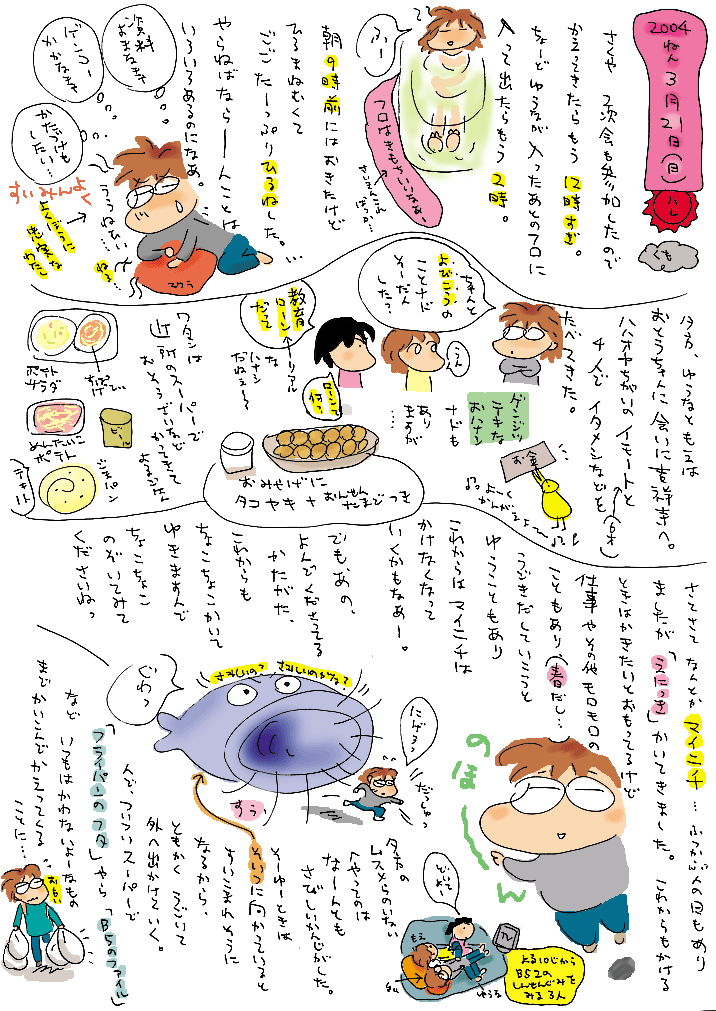 2004
ねん
3
月
21
日
(日)
ハレ
くも
さくや 2次会も参加したので
かえってきたらもう 12時すぎ。
ちょーど ゆうなが 入ったあとのフロに
入って出たらもう 2時。
ふー
フロはきもちいいなぁー
さいきんこれ
ばっか…
朝9時前にはおきたけど
ひるまねむくて
ごご たーっぷり ひるねした。…
やらねばならーんことは
いろいろあるのになぁ。
資料
おまちを
ゲンコー
かかなきゃ
かたづけも
したい…
すいみんよく
よくぼうに
忠実な
わたし
うぅねむい…
ねる…
マクラ
夕方、ゆうなともえは
おとうちゃんに会いに吉祥寺へ。
ハハオヤちがいの イモートと
(6才)
4人で イタメシなどを
たべてきた。
ちゃんと
よびこうの
ことナド
そーだん
した?
うん
教育
ローンだって
リアル
な
ハナシ
だねぇ〜
ローンって
何?
ゲンジツ
テキな
おハナシ
ナドも
あり
ますが
…
お金
よーく
かんがえよー
おみやげに
タコヤキ+おんせんたまごつき
ワタシは
近所のスーパーで
おそうざいなど
かってきて
よるごはん
ポテト
サラダ
ちばげてい
めんたいこ
ポテト
ビール
ジャパン
デザート
さてさて なんとか マイニチ…ふつかぶんの日もあり
ましたが「えにっき」かいてきました。 これからもかける
ときはかきたいとおもってるけど
仕事やその他モロモロの
こともあり(春だし…
うごきだしていこうと
ゆうこともあり
これからは マイニチは
かけなくなって
いくかもなぁー。
でもあの、
よんでくださってる
かたがた、
これからも
ちょこちょこかいて
ゆきますんで
ちょこちょこ
のぞいてみて
くださいねっ
のほーーん
さみしいの? さみしいのかなぁ?
ぐわっ
にげろっ
だっしゅっ
すぅっ
夕方の
ムスメらのいない
へやってのは
なーんとも
さびしいかんじがした。
そーゆーときは
そいつに向かっていると
すいこまれそうに
なるから、
ともかく うごいて
外へ出かけていく。
んで ついついスーパーで
「フライパンのフタ」やら「B5のファイル」
など いつもはかわないよーなもの
までかいこんでかえってくる
ことに…
おもい
どいてー
もえ
ゆうな
TV
よる10じから
BS2の
しんせんぐみを
みる3人